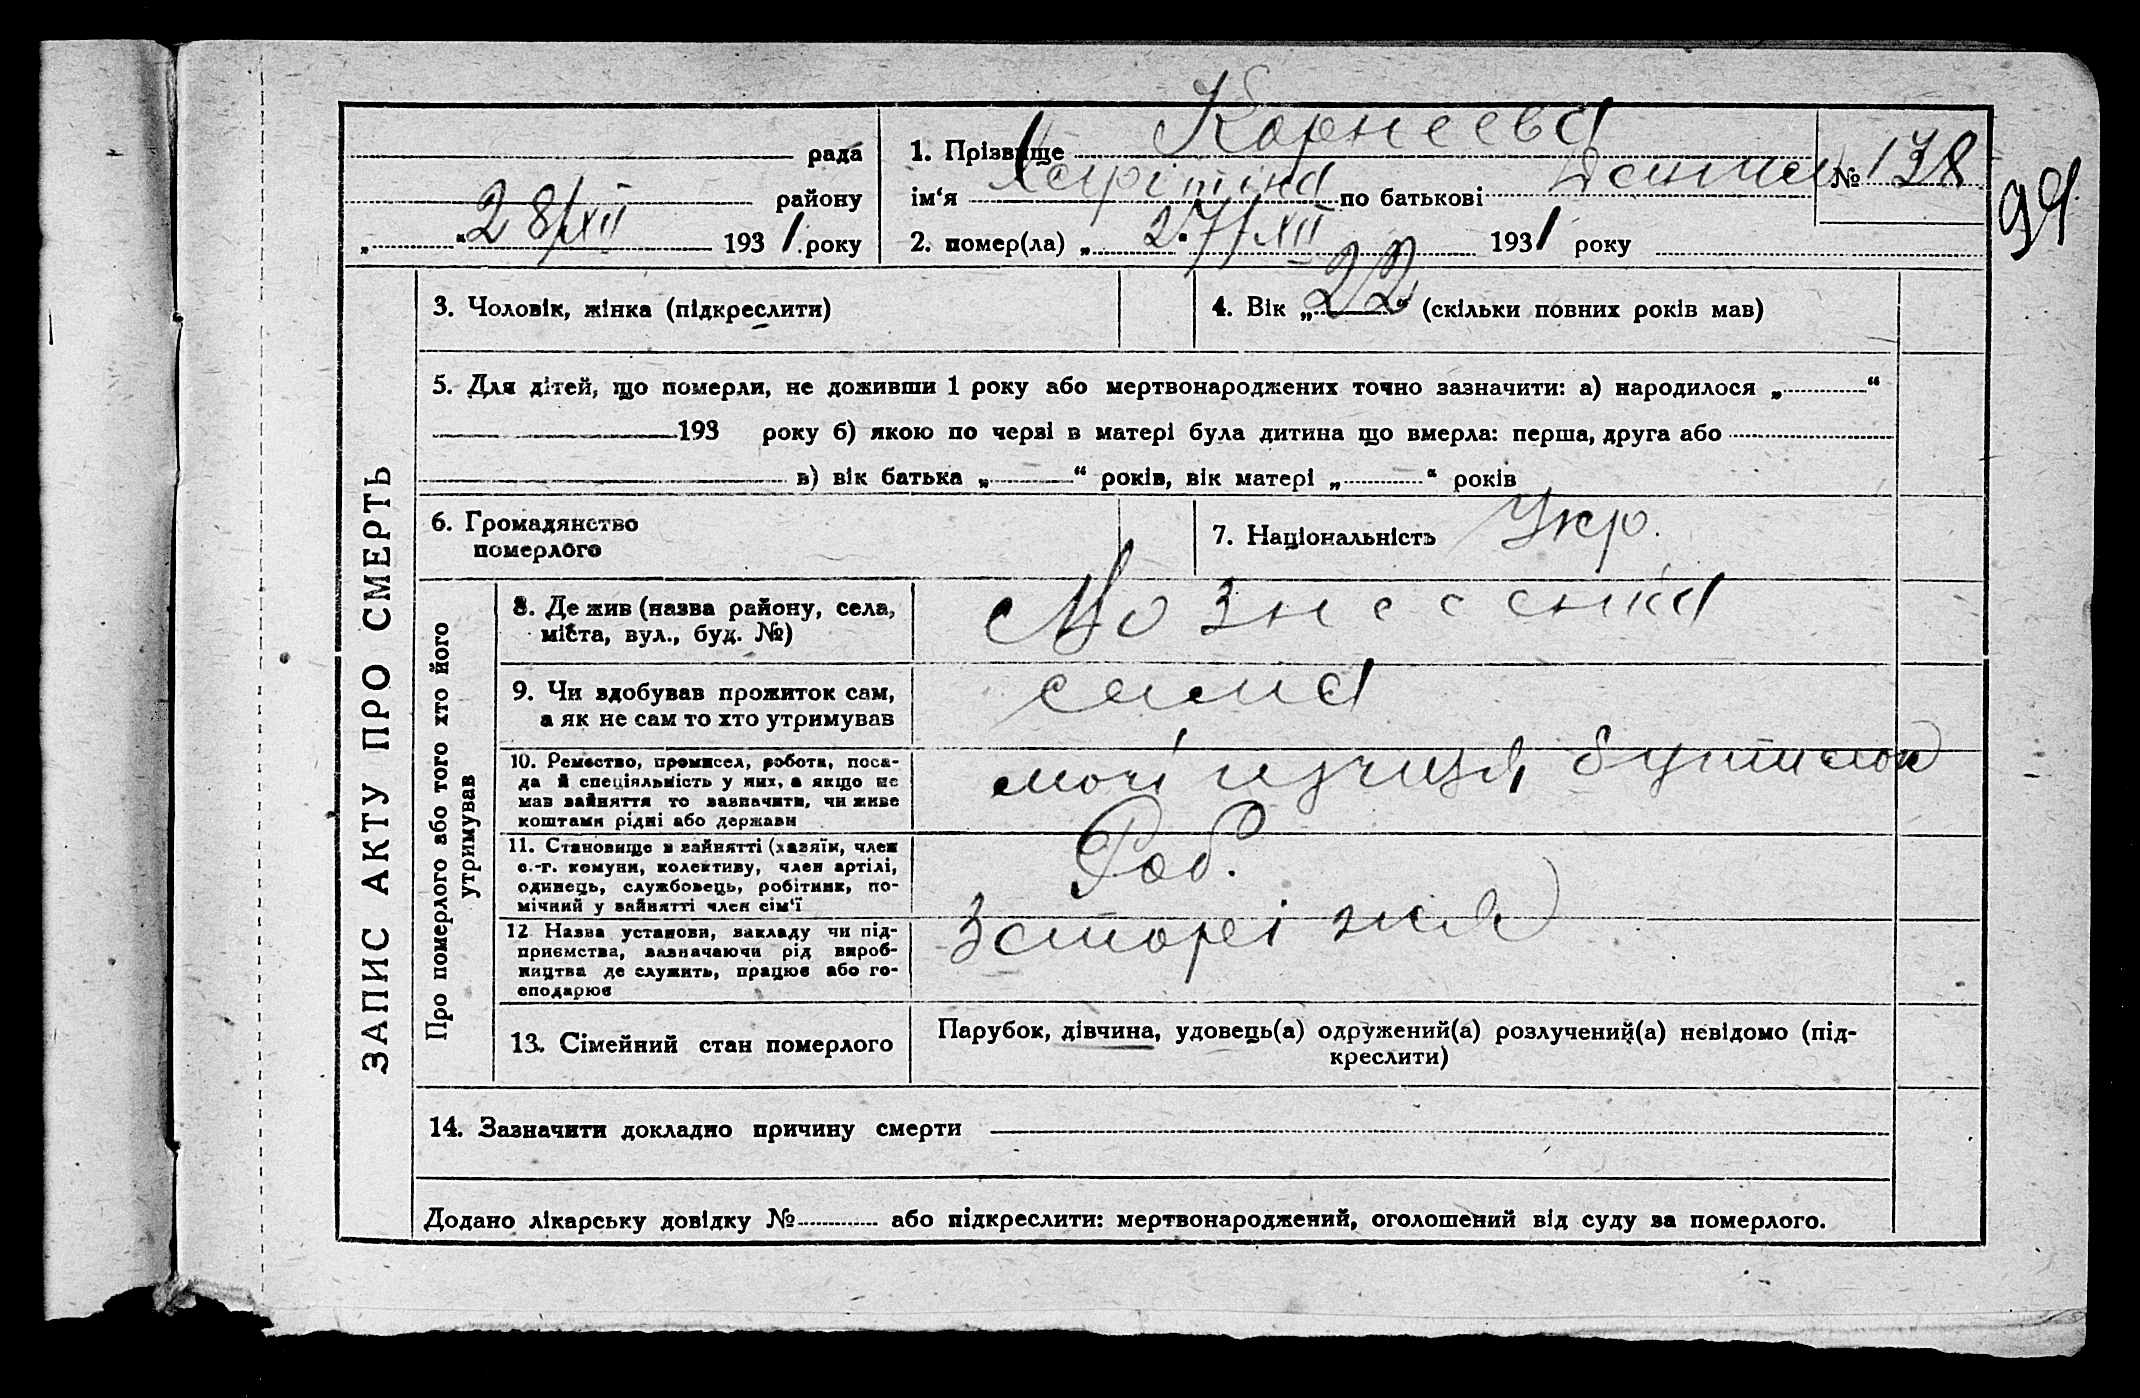 Корнеева
рада
1. Прізвище
№ 138
району
ім'я Харітіна по батькові Данил
99
„ “ 28/XII 1931 року
2. помер(ла) „27/XII 1931 року
ЗАПИС АКТУ ПРО СМЕРТЬ
3. Чоловік, жінка (підкреслити)
4. Вік „22“ (скільки повних років мав)
5. Для дітей, що померли, не доживши 1 року або мертвонароджених точно зазначити: а) народилося „ “
193 року б) якою по черзі в матері була дитина що вмерла: перша, друга або
в) вік батька „ “ років, вік матері „ “ років
6. Громадянство
померлого
7. Національність Укр.
Про померлого або того хто його
утримував
8. Де жив (назва району, села,
міста, вул., буд. №)
Вознесенка
9. Чи здобував прожиток сам,
а як не сам то хто утримував
сама
10. Ремество, промисел, робота, поса-
да й спеціяльність у них, а якщо не
мав зайняття то зазначити, чи живе
коштами рідні або держави
бутилок
11. Становище в зайнятті (хазяїн, член
с.-г. комуни, колективу, член артілі,
одинець, службовець, робітник, по-
мічний у зайнятті член сім'ї
Роб.
12 Назва установи, закладу чи під-
приємства, зазначаючи рід вироб-
ництва де служить, працює або го-
сподарює
13. Сімейний стан померлого
Парубок, дівчина, удовець(а) одружений(а) розлучений(а) невідомо (під-
креслити)
14. Зазначити докладно причину смерти
Додано лікарську довідку № або підкреслити: мертвонароджений, оголошений від суду за померлого.